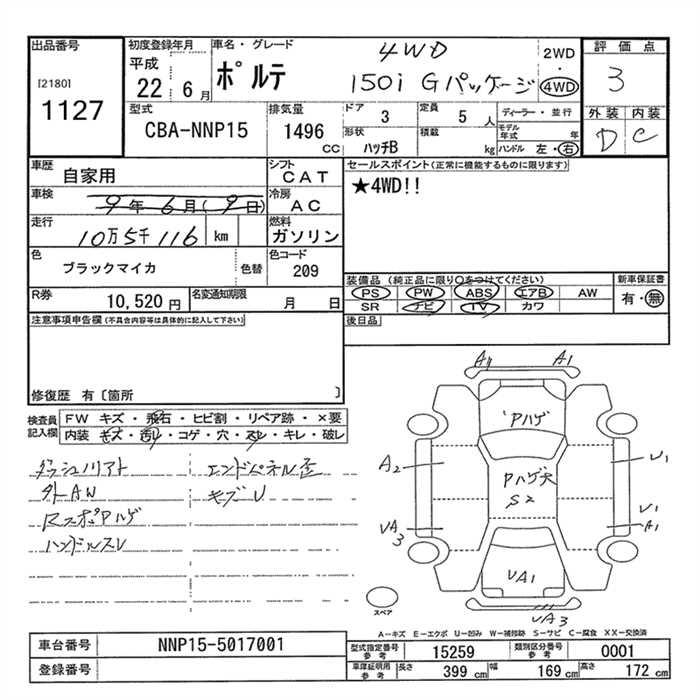 出品番号
[2180]
1127
初度登録年月
平成
22 6月
車名・グレード
ポルテ
4WD
150i Gパッケージ
2WD
・
4WD
評価点
3
外装 内装
D C
型式
CBA-NNP15
排気量
1496
CC
ドア
3
定員
5 人
ディーラー・並行
形状
ハッチB
積載
kg
モデル年式
年
ハンドル 左・右
車歴
自家用
シフト
CAT
車検
9年6月(9日)
冷房
AC
走行
10万5千116 km
燃料
ガソリン
色
ブラックマイカ
色替
色コード
209
R券
10,520円
名変通知期限
月 日
セールスポイント(正常に機能するものに限ります)
★4WD!!
装備品 (純正品に限り○をつけてください)
PS PW ABS エアB AW
SR ナビ TV カワ
新車保証書
有・無
後日品
注意事項申告欄(不具合内容等は具体的に記入して下さい)
修復歴 有〔箇所 〕
検査員
記入欄
FW キズ・飛石・ヒビ割・リペア跡・×要
内装 キズ・汚レ・コゲ・穴・スレ・キレ・破レ
ダッシュノリアト
外AW
RスポPハゲ
ハンドルスレ
エンドパネル歪
キズU
A1 A1
Pハゲ
A2
U1
Pハゲ大
S2
UA3
U1
A1
UA1
UA3
スペア
A-キズ E-エクボ U-凹み W-補修跡 S-サビ C-腐食 XX-交換済
車台番号
NNP15-5017001
登録番号
型式指定番号
参考
15259
類別区分番号
参考
0001
車庫証明用
参考
長さ
399 cm
幅
169 cm
高さ
172 cm